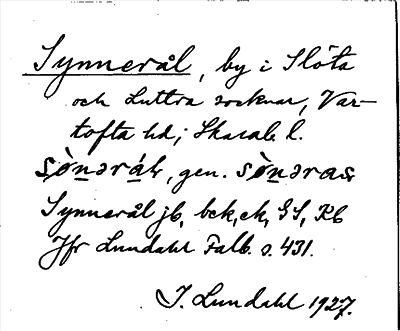 Synnerål, by i Slöta
och Luttra socknar, Var-
tofta hd, Skarab. l.
sònərál, gen. sònəras
Synnerål jb, bck, ek, GS, Kb
Jfr Lundahl Falb. s. 431.
I. Lundahl 1927.